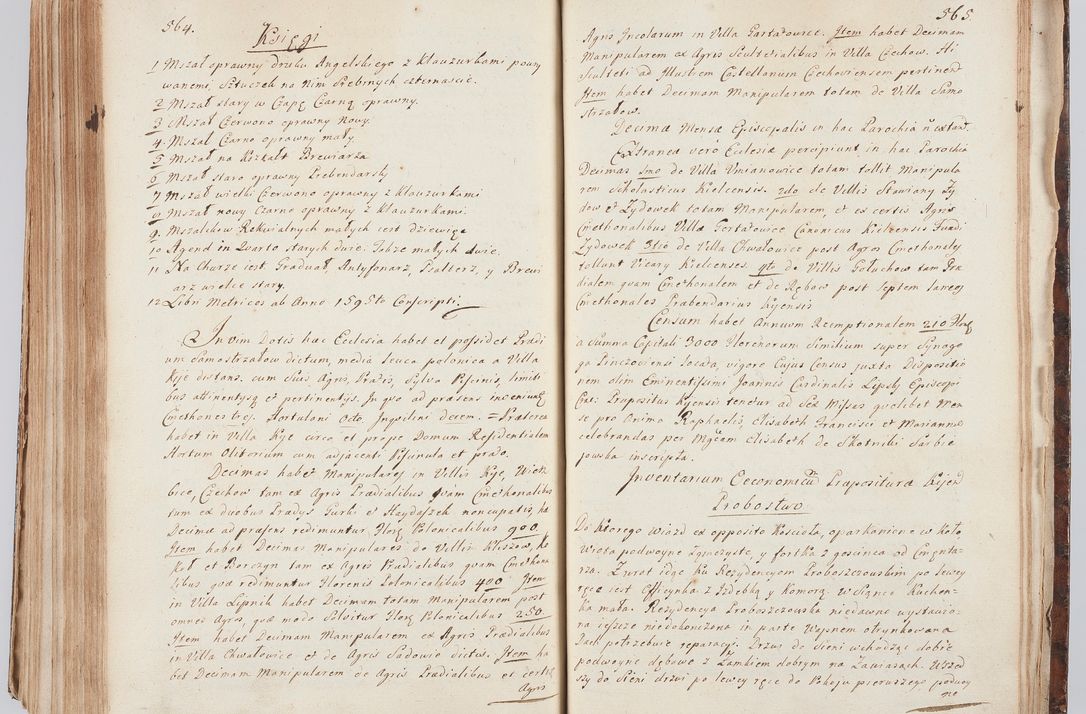 564.
Księgi
1 Mszał oprawny druku Angelskiego z klauzurkami pozły
wanemi, Sztuczek na Nim Srebrnych czternaście.
2 Mszał stary w Capę Czarną oprawny.
3 Mszał Czerwono oprawny Nowy.
4 Mszał Czarno oprawny mały.
5 Mszał na Kształt Brewiarza
6 Mszał staro oprawny Prebendarski
7 Mszał wielki Czerwono oprawny z klauzurkami
8 Mszał nowy Czarno oprawny z klauzurkami.
9. Mszalików Rekwialnych małych iest dziewięć
10 Agend in Quarto starych dwie. Także małych dwie.
11 Na Churze iest Graduał, Antyfonarz, Psalterz, y Brewi
arz wielce stary.
12 Libri Metrices ab Anno 1595to Conscripti.
In vim Dotis hac Ecclesia habet et possidet Prædi
um Samostrzałow dictum, media leuca polonica a Villa
Kije distans. cum Suis Agris, Pratis, Sylva Piscinis, limiti
bus attinentÿs et pertinentÿs. In quo ad præsens inveniunt
Cmethones trej. Hortulani Octo. Inquilini decem. = Præterea
habet in Villa Kije circa et prope Domum Residentialem
Hortum Olitorium cum adjacenti Piscinula et prato.
Decimas habet Manipularej in Villis Kije, Wierz
bice, Czechow tam ex Agris Prædialibus quam Cmethonalibus
tum ex duobus Pradÿs Gurki et Haydaszek noncupatis, hæ
Decimæ ad præsens redimuntur Flor. Polonicalibus 900.
Item habet Decimas Manipulares de Villis Kliszow, Ko
kot et Borczyn tam ex Agris Prædialibus quam Cmethona
libus quæ redimuntur Florenis Polonicalibus 400 Item
in Villa Lipnik habet Decimam totam Manipularem post
omnes Agros, quæ modo Solvitur Flor. Polonicalibus 250.
Item habet Decimam Manipularem ex Agris Prædialibus
in Villa Chwałowice et de Agris Sadowie dictis. Item ha
bet Decimam Manipularem de Agris Prædialibus et certis
Agris
565.
Agris Incolarum in Villa Gartatowice. Item habet Decimam
Manipularem ex Agris Scultetialibus in Villa Czechow. Hi
Sculteti ad Illustrem Castellanum Czechoviensem pertinent
Item habet Decimam Manipularem totam de Villa Samo
strzałow.
Decimæ Mensæ Episcopalis in hac Parochia ñ extant.
Extraneæ verò Ecclesiæ percipiunt in hac Parochia
Decimas 1mo de Villa Umianowice totam tollit Manipula
rem Scholasticus Kielcensis. 2do. de Villis Stawiany Zy
dow et Zydowek totam Manipularem, et ex certis Agris
Cmethonalibus Villæ Gartatowice Canonicus Kielcensis Fundi
Zydowek 3tiò de Villa Chwałowice post Agros Cmethonalej
tollunt Vicarij Kielcenses. 4to de Villis Gołuchow tam Præ
dialem quam Cmethonalem et de Rębow post Septem laneos
Cmethonales Præbendarius Kijensis
Censum habet Annuum Reemptionalem 210 Flor
a Summa Capitali 3000 Florenorum Similium super Synago
ga Pinczoviensi locata, vigore Cujus Census juxta Dispositio
nem olim Eminentissimi Joannis Cardinalis Lipsky Episcopi
Crac: Præpositus Kijensis tenetur ad Sex Missas quolibet Men
se pro Anima Raphaelis, Elisabeth Francisci et Mariannæ
celebrandas per Mgcam Elisabeth de Skotniki Sarbie
jowska inscripta.
Inventarium Oeconomicũ Præpositura Kijen
Probostwo
Do Ktorego wiazd ex opposito Kościoła, oparkanione w koło,
Wrota podwoyne Zgnczyste, y fortka z gosćinca od Cmęnta-
rza. Zaraz idąc ku Rezydencyom Proboszczowskim po lewey
ręce iest Officynka z Izdebką y Komorą. W Sionce Kuchen-
ka mała. Rezydencya Proboszczowska niedawno wystawio-
na ieszcze niedokończona in parte Wapnem otrynkowana
Dach potrzebuie reparacyi. Drzwi do Sieni wchodząc dobre
podwoyne dębowe z Zamkiem dobrym na Zawiasach. Wszed
szy do Sieni drzwi po lewey ręce do Pokoju pierwszego podwoy
ne